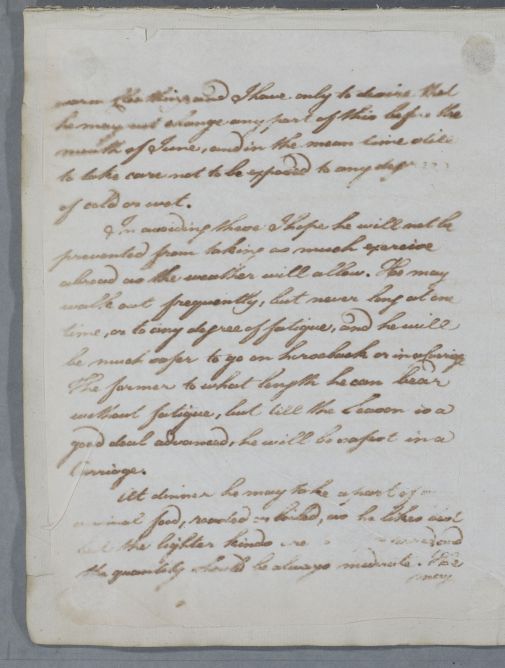 warm Cloathing and I have only to desire that
he may not change any part of this before the
month of June, and in the mean time still
to take care not to be exposed to any
of cold or wet.
In avoiding these I hope he will not be
prevented from taking as much exercise
abroad as the weather will allow. He may
walk out frequently, but never long at one
time, or to any degree of fatigue, and he will
be much safer to go on horseback or in a Carriage
The former to what length he can bear
without fatigue, but till the Season is a
good deal advanced, he will be safest in a
Carriage.
At dinner he may take a part of
animal food, roasted or boiled, as he likes best
but the lighter kinds are and
the quantity should be always moderate. He
may